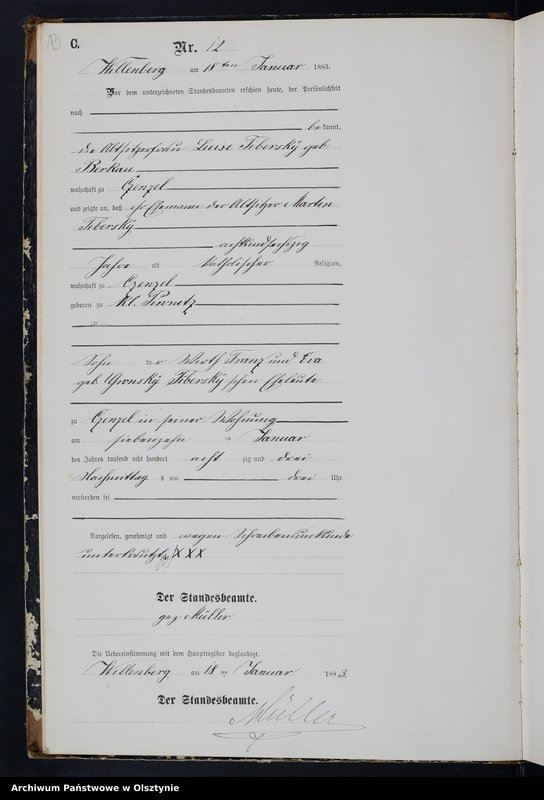 13
C.
Nr. 12
Willenberg am 18ten Januar 1883.
Vor dem unterzeichneten Standesbeamten erschien heute, der Persönlichkeit
nach
bekannt,
die Altsitzerfrau Luise Tiborsky geb
Berkau
wohnhaft zu Czenzel
und zeigte an, daß ihr Ehemann der Altsitzer Martin
Tiborsky
achtundsechzig
Jahre alt katholischer Religion,
wohnhaft zu Czenzel
geboren zu Kl. Piwnitz
Sohn der Wirth Franz und Eva
geb. Tiborsky schen Eheleute
zu Czenzel in seiner Wohnung
am siebenzehn Januar
des Jahres tausend acht hundert acht zig und drei
Nachmittag s um drei Uhr
verstorben sei
Vorgelesen, genehmigt und wegen Schreibensunkunde
unterkreuzt XXX
Der Standesbeamte.
gez Müller
Die Uebereinstimmung mit dem Hauptregister beglaubigt.
Willenberg am 18 ten Januar 1883.
Der Standesbeamte.
Müller
Archiwum Państwowe w Olsztynie